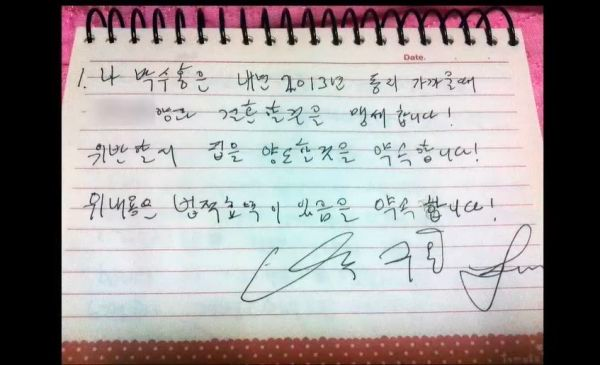 Date.
1. 나 박수홍은 내년 2013년 가까울때
결혼할것을 맹세합니다!
위반할시 집을 양도할것을 약속합니다!
위내용은 법적효력이 있음을 약속합니다!